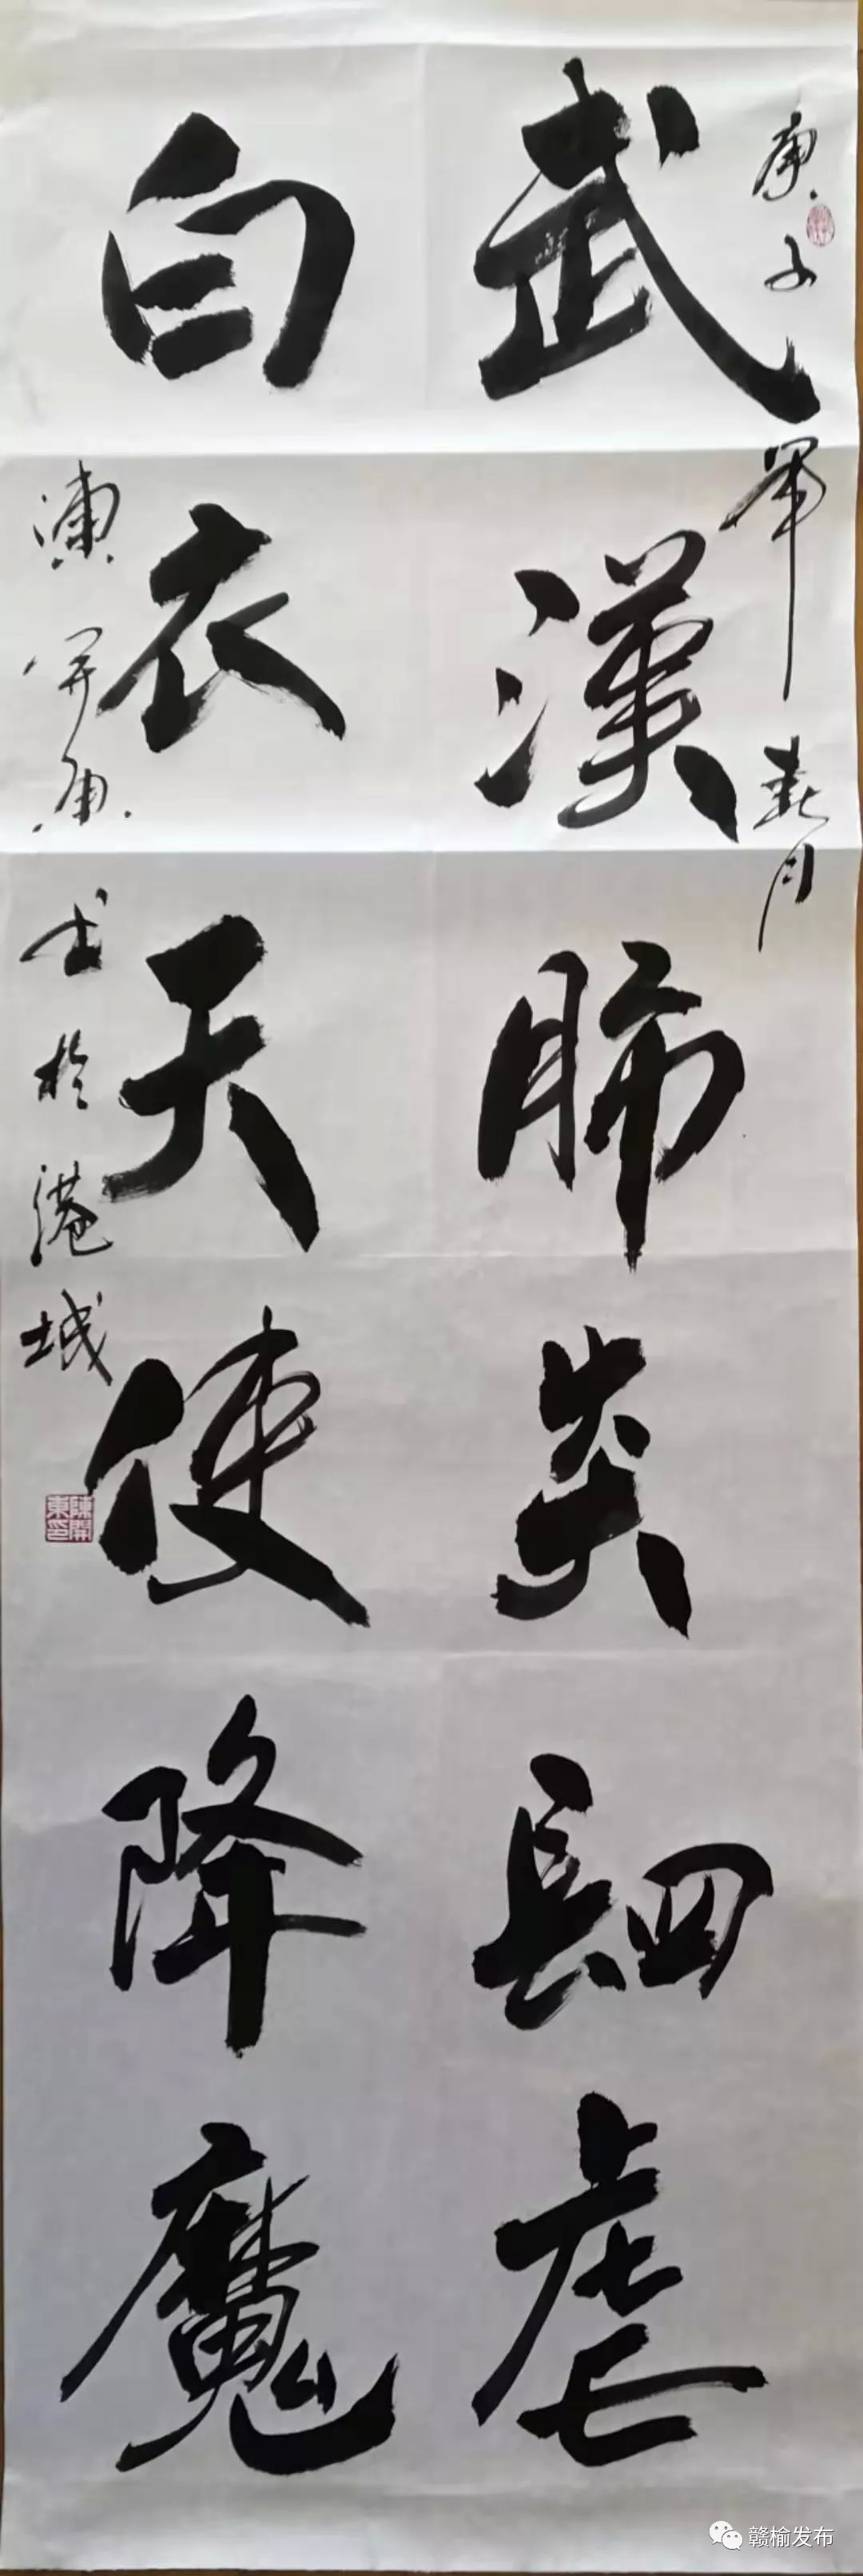 庚子年春月
武漢肺炎肆虐
白衣天使降魔
陳开東书於港城
陳開東印
赣榆发布